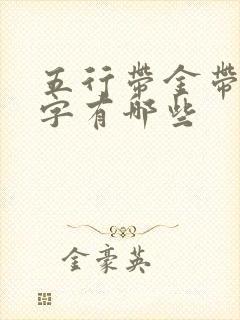 五行带金带
字有哪些
金豪英